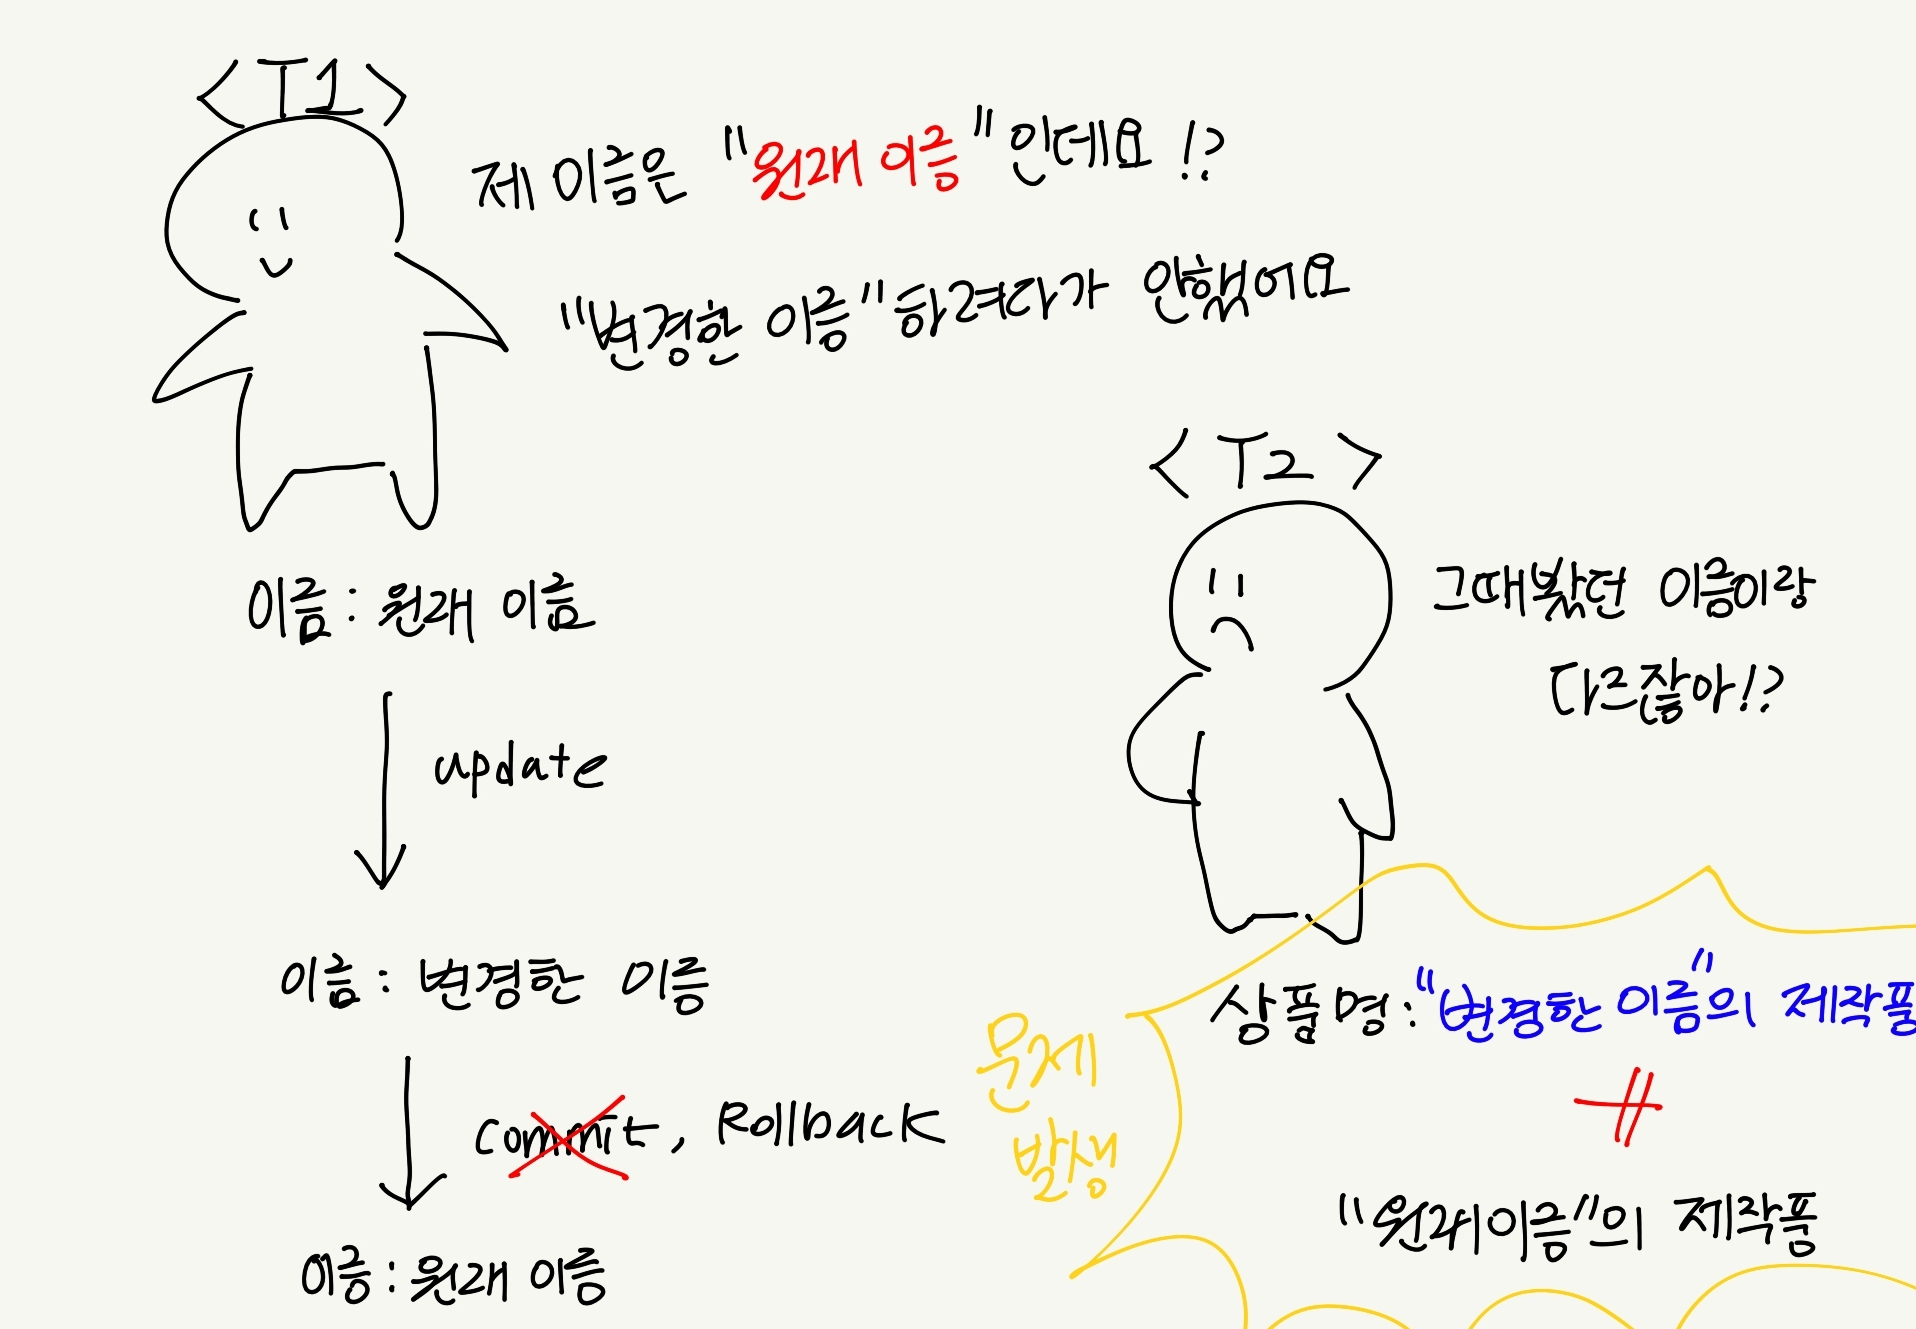 <T1>
제 이름은 "원래 이름"인데요!?
"변경한 이름"하려다가 안했어요
이름: 원래 이름
update
이름: 변경한 이름
commit, Rollback
이름: 원래 이름
<T2>
그때봤던 이름이랑
다르잖아!?
문제
발생
상품명: "변경한 이름"의 제작품
"원래이름"의 제작품